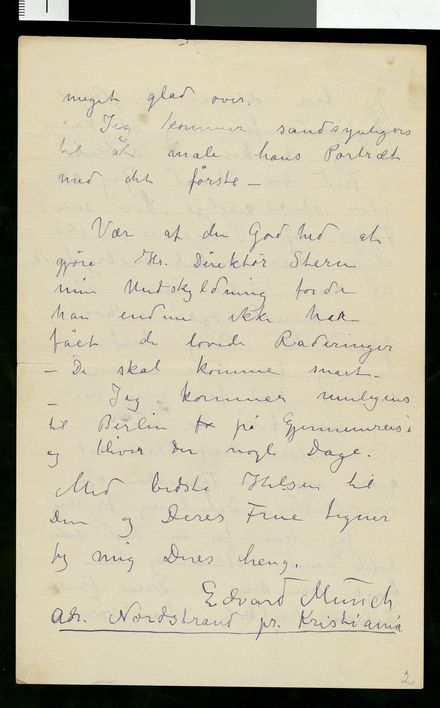 meget glad over.
Jeg kommer sandsynligvis
til at male hans Portræt
med det første –
Vær af den Godhed at
gjøre Hr. Direktør Stern
min Undskyldning fordi
han endnu ikke har
fået de lovede Raderinger
– De skal komme snart –
– Jeg kommer muligens
til Berlin på Gjennemreise
og bliver der nogle Dage.
Med bedste Hilsen til
Dem og Deres Frue tegner
jeg mig Deres heng.
Edvard Munch
Adr. Nordstrand pr. Kristiania
2